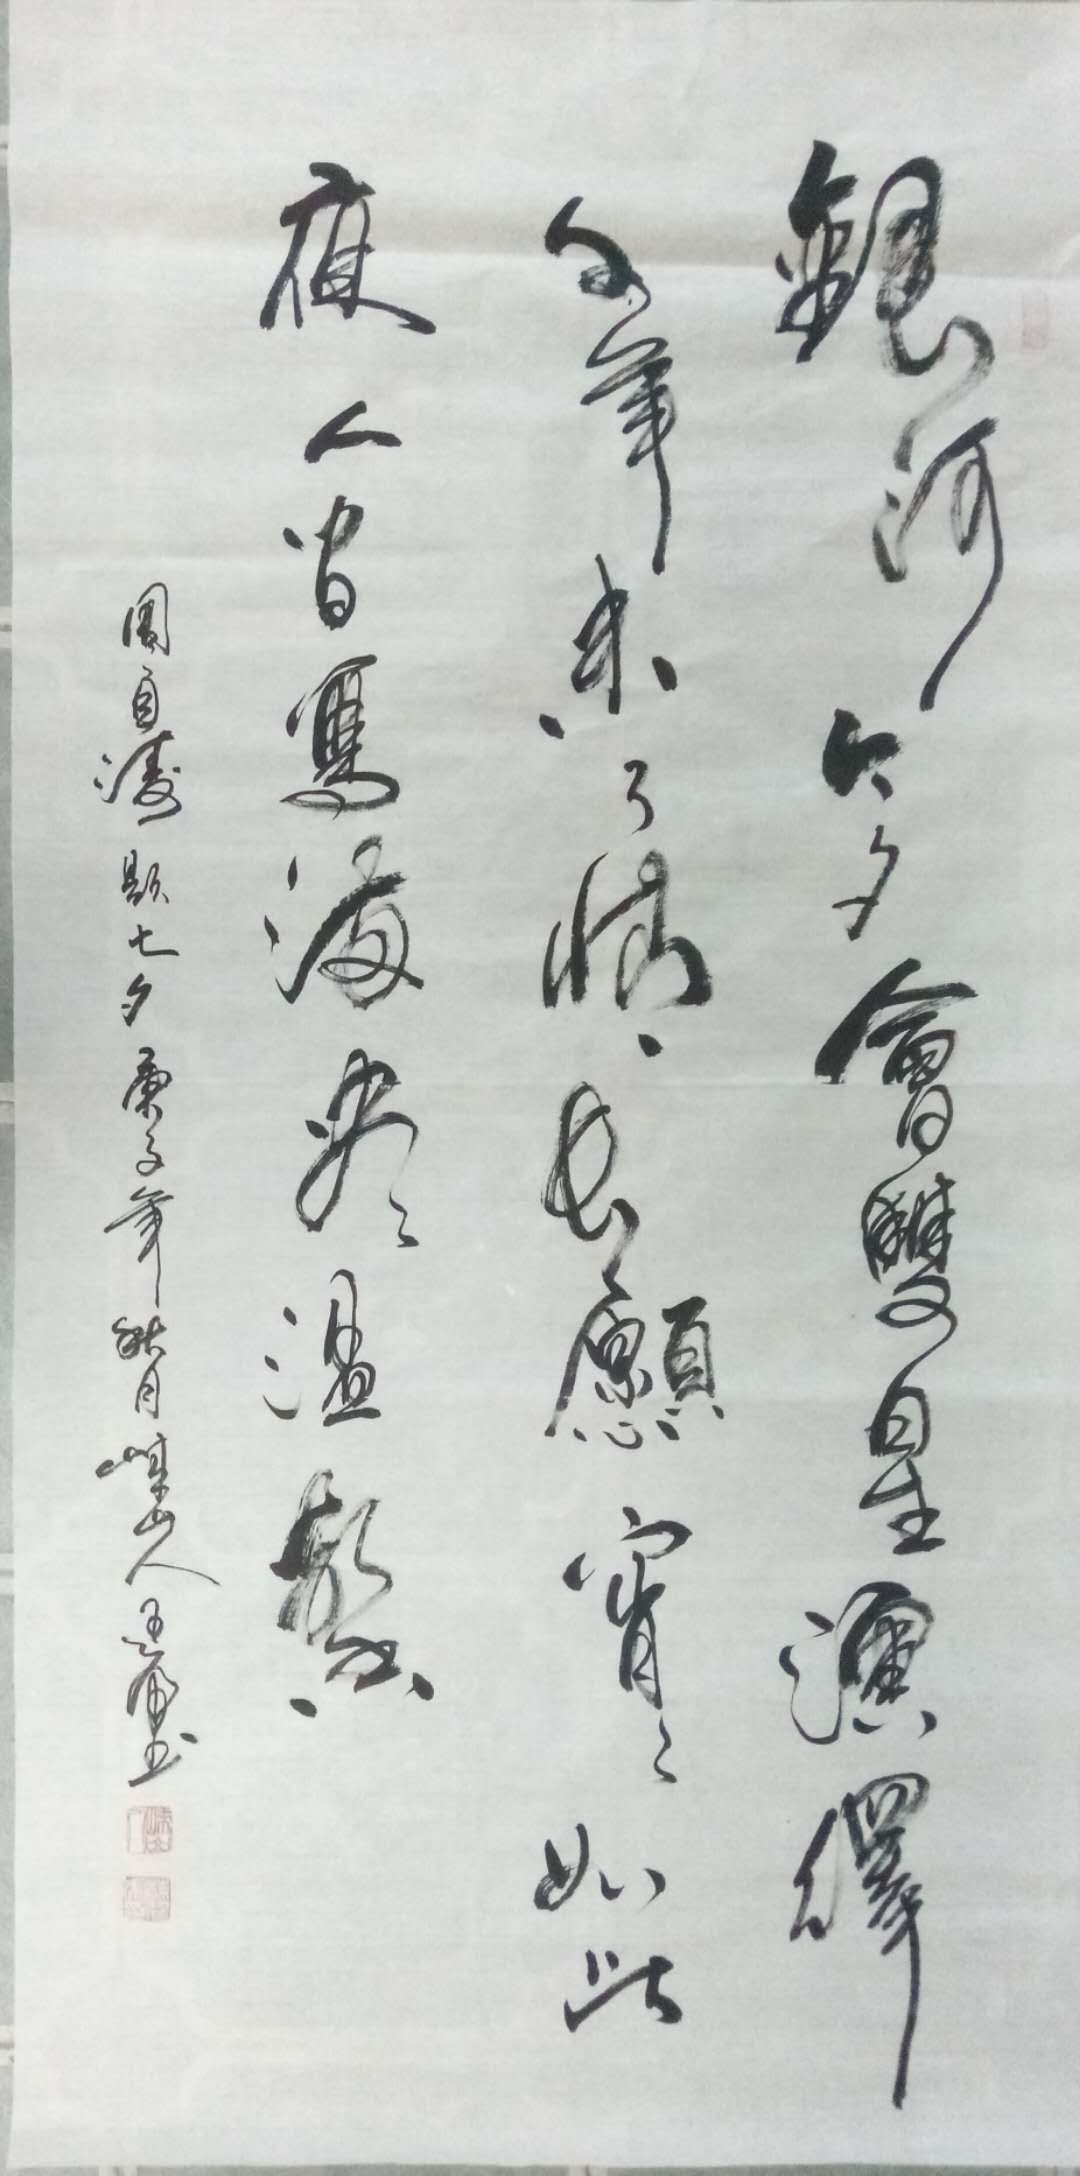 銀河今夕會雙星演繹
年未了情長願宵宵如此
夜人間寫滿盡溫馨
周自濤題七夕庚子年秋月山人王書